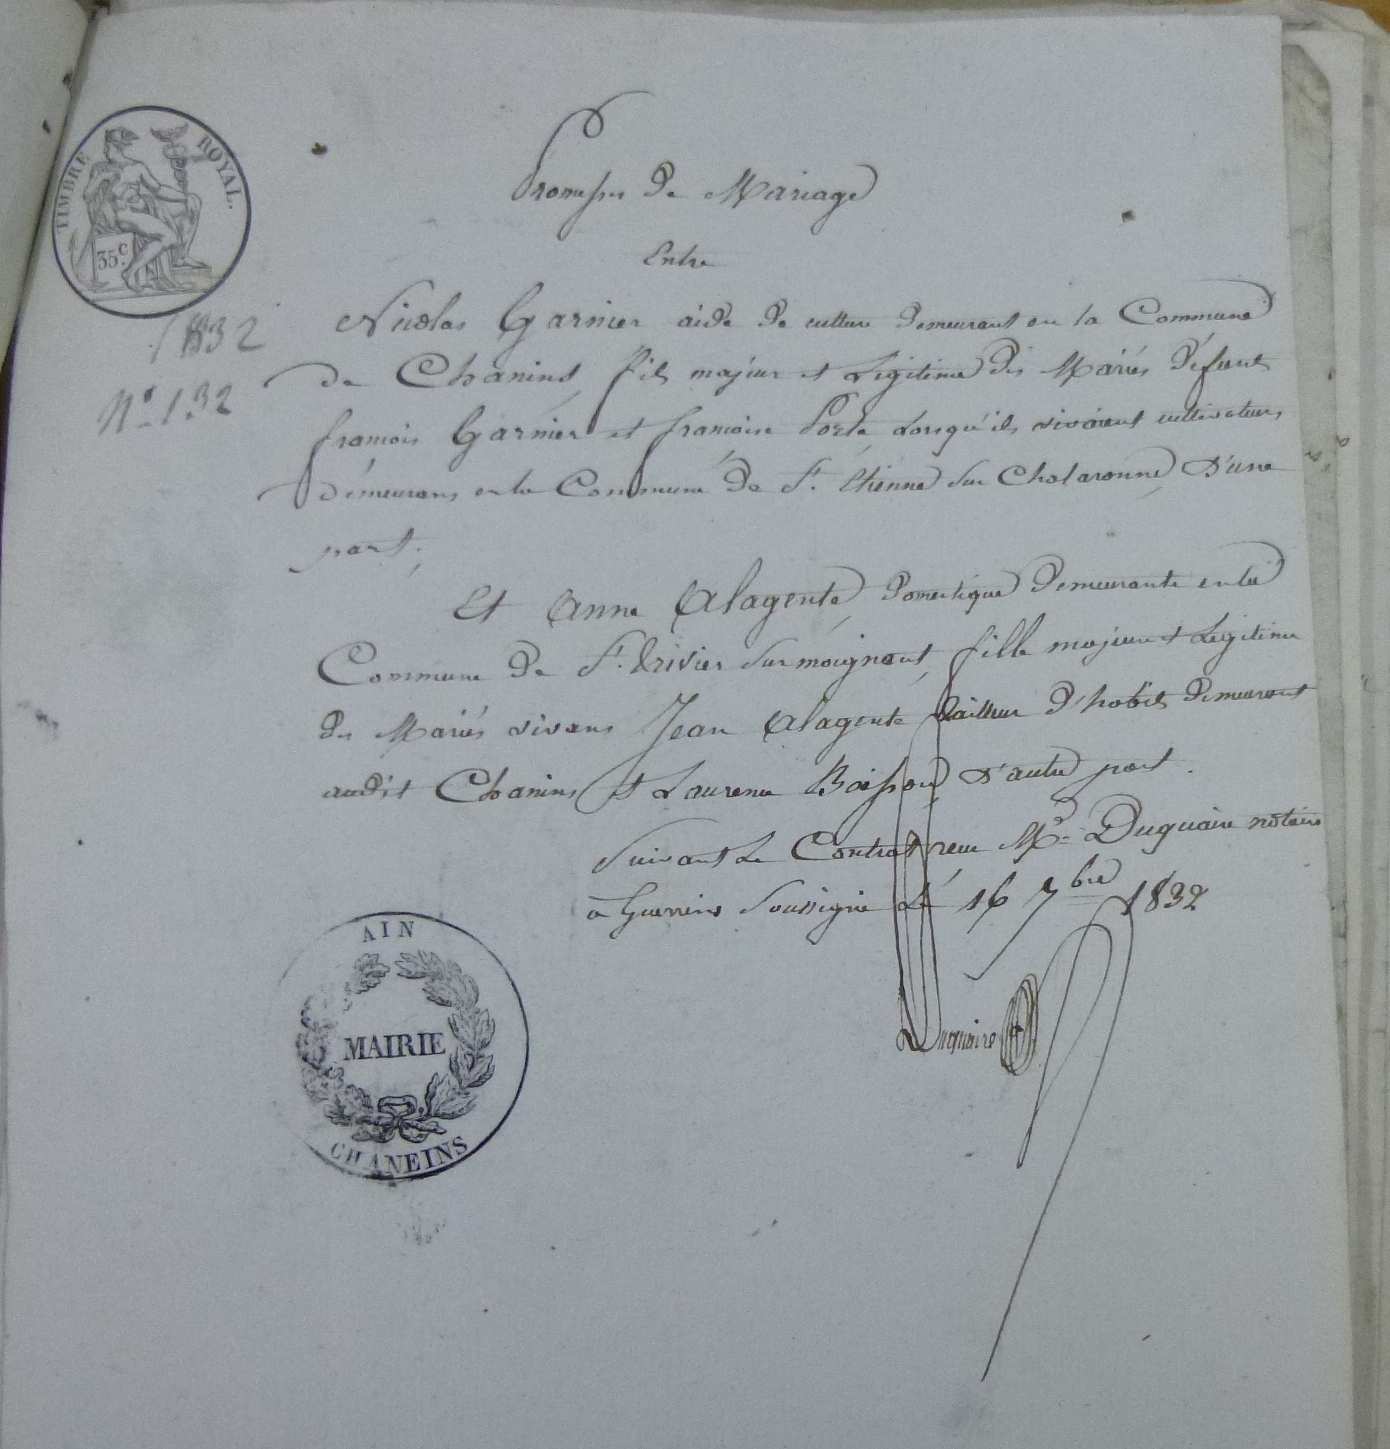 TIMBRE ROYAL.
35 c.
1832
N° 132
Promesses de Mariage
Entre
Nicolas Garnier aide de culture demeurant en la Commune
de Chanins fils majeur et Légitime des Mariés défunts
françois Garnier et françoise Porte Lorsqu'ils vivaient cultivateurs
démeurans en la Commune de St. Etienne sur Cholaronne D'une
part.
Et Anne Alagente domestique demeurante en la
Commune de St. Trivier sur moignant, fille majeure et Légitime
des Mariés vivans Jean Alagente tailleur d'habits demeurant
audit Chanins et Laurence Boisson D'autre part.
Suivant Le Contrat reçu Me Duguaire notaire
à Guerreins Soussigné Le 16 7bre 1832
Duguaire
AIN
MAIRIE
CHANEINS